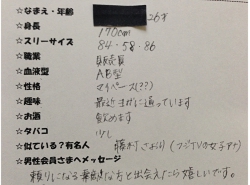 ☆なまえ・年齢 26才
☆身長 170cm
☆スリーサイズ 84・58・86
☆職業 販売員
☆血液型 AB型
☆性格 マイペース(??)
☆趣味 最近ヨガに通っています
☆お酒 飲めます
☆タバコ 少し
☆似ている?有名人 (フジTVの女子アナ)
☆男性会員さまへメッセージ
頼りになる 方と出会えたら嬉しいです。